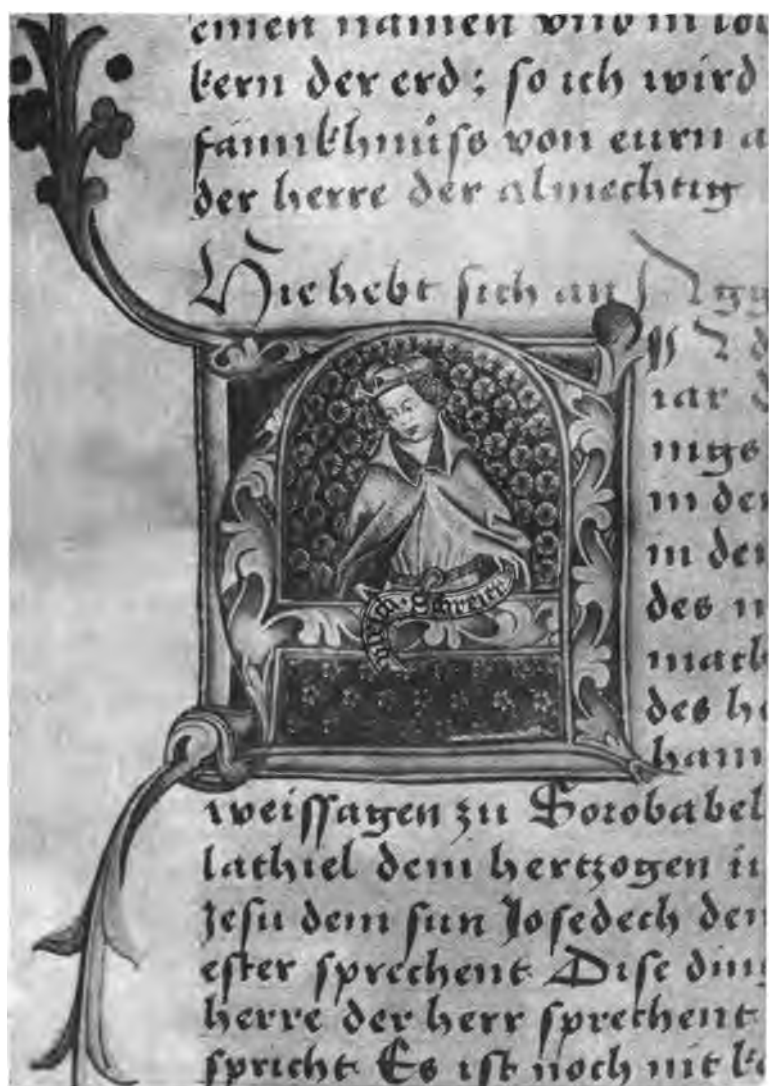 einen namen vnd in lob
kern der erd: so ich wird
fännkhnůss von eurn a
der herre der almechtig
Hie hebt sich an Agg
iar d
nigs
in der
in der
des n
mach
des he
ham
Ulrich · Schreier
weissagen zu Sorobabel
lathiel dem hertzogen i
Jesu dem sun Josedech den
ester sprechent Dise ding
herre der herr sprechent
spricht Es ist noch nit k